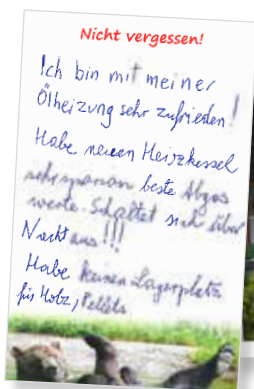 Nicht vergessen!
Ich bin mit meiner
Ölheizung sehr zufrieden!
Habe neuen Heizkessel
sehr sparsam beste Abgas
werte. Schaltet sich über
Nacht aus!!!
Habe keinen Lagerplatz
für Holz, Pellets